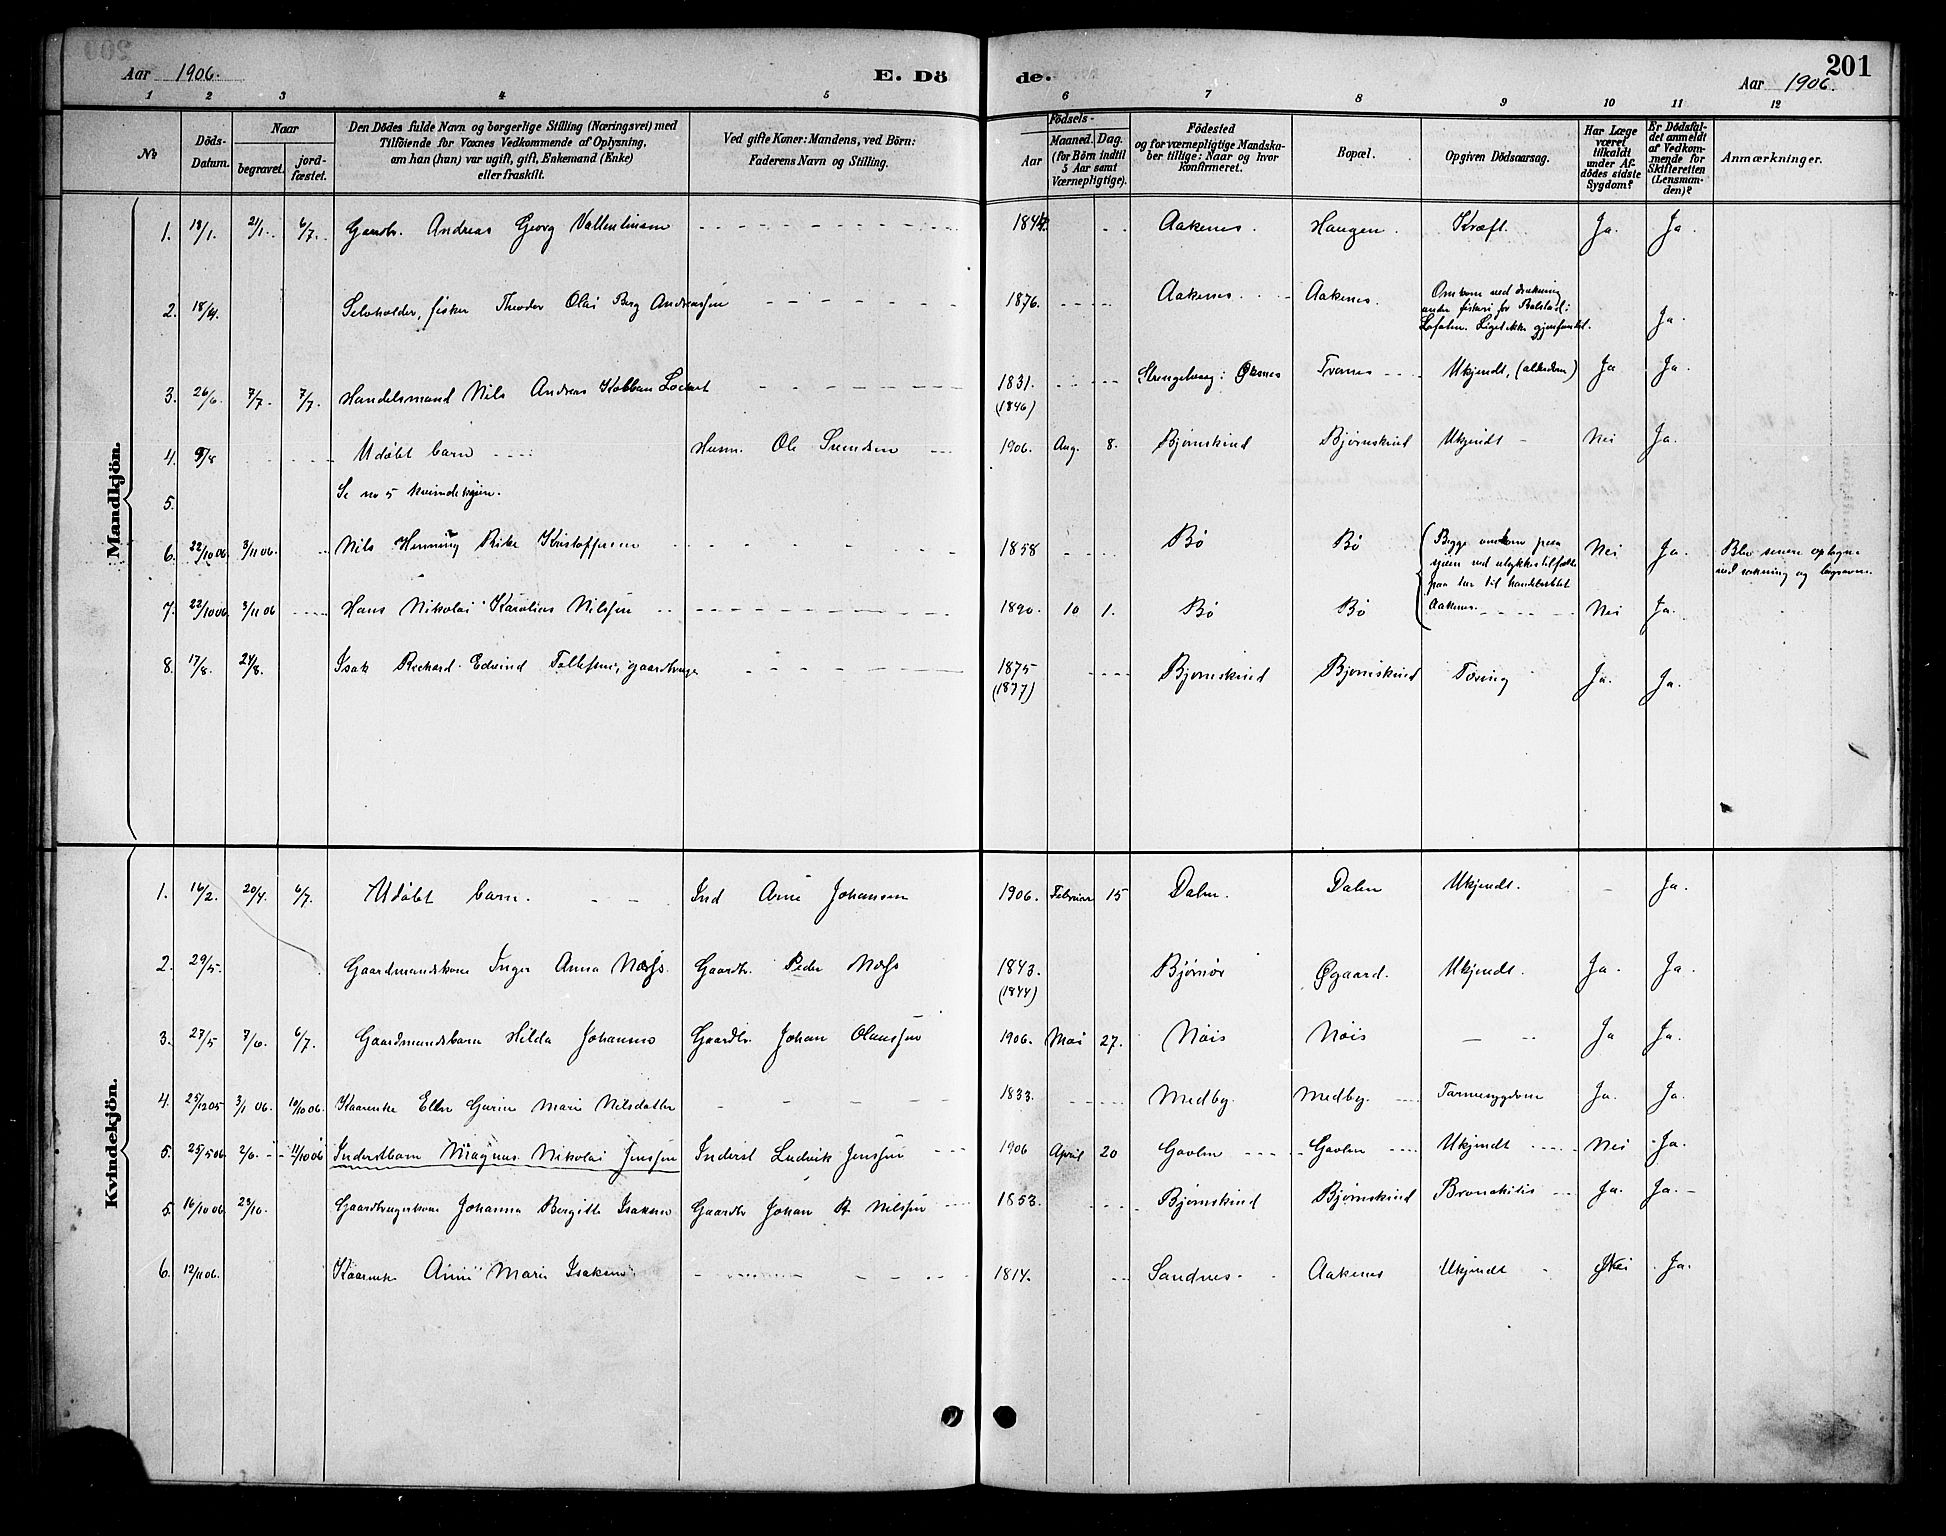 Aar 1906. E. Dö de. Aar 1906. 201
1 2 3 4 5 6 7 8 9 10 11 12
№
Döds-
Datum.
Naar
begravet.
jord-
fæstet.
Den Dödes fulde Navn og borgerlige Stilling (Næringsvei) med
Tilföiende for Voxnes Vedkommende af Oplysning,
om han (hun) var ugift, gift, Enkemand (Enke)
eller fraskilt.
Ved gifte Koner: Mandens, ved Börn:
Faderens Navn og Stilling.
Födsels-
Aar
Maaned. Dag.
(for Börn indtil
5 Aar samt
Værnepligtige).
Födested
og for værnepligtige Mandska-
ber tillige: Naar og hvor
konfirmeret.
Bopæl.
Opgiven Dödsaarsag.
Har Læge
været
tilkaldt
under Af-
dödes sidste
Sygdom?
Er Dödsfal-
det anmeldt
af Vedkom-
mende for
Skifteretten
(Lensman-
den)?
Anmærkninger.
Mandkjön.
1. 18/1. 21/1. 6/7. Gaardbr. Andreas Georg Vallentinsen 1844. Aakenes. Haugen. Kræft. Ja. Ja.
2. 18/4. Selvholder, fisker Theodor Olai Berg Andreassen 1876. Aakenes. Aakenes. Omkom ved drukning
under fiskeri for Balstad i
Lofoten. Liget ikke gjenfundet. Ja.
3. 26/6. 7/7. 7/7. Handelsmand Nils Andreas Kobban Lockert 1831. (1846) Strengelvaag i Øksnes Tranes Ukjendt, (alderdom) Ja Ja.
4. 9/8 Udöbt barn Husm. Ole Svendsen 1906. Aug. 8. Bjørnskind Bjørnskind Ukjendt Nei Ja.
5. Se no 5 kvindekjøn.
6. 22/10 06. 3/11 06. Nils Henning Rike Kristoffersen 1858 Bø Bø Begge omkom paa
sjøen ved ulykkestilfælde
paa tur til handelsstedet
Aakenes. Nei Ja. Blev senere optagne
ved sokning og begravne.
7. 22/10 06. 3/11 06 Hans Nikolai Karolius Nilssen 1890. 10 1. Bø Bø Nei Ja.
8. 17/8. 24/8. Isak Rickard Edvind Tollefsen, gaardbruger 1875 (1877) Bjørnskind Bjørnskind Tæring Ja. Ja.
Kvindekjön.
1. 16/2. 20/4. 6/7. Udöbt barn. Ind Arne Johansen 1906. Februar 15 Dalen. Dalen Ukjendt. Ja.
2. 29/5. Gaardmandskone Inger Anna Næss. Gaardbr. Peder Næss 1843. (1844) Bjørnør Øgaard. Ukjendt. Ja. Ja.
3. 27/5 7/6. 6/7. Gaardmandsbarn Hilda Johansen Gaardbr. Johan Olaussen 1906. Mai 27. Nöis Nöis Ja Ja.
4. 25/12 05 3/1 06. 10/10 06. Kaarenke Ellen Gurine Marie Nilsdatter 1833. Medby. Medby. Tarmesygdom Ja. Ja.
5. 25/5 06 2/6. 11/10 06 Inderstbarn Magnus Nikolai Jenssen Inderst Ludvik Jenssen 1906 April 20 Gavlen Gavlen Ukjendt Nei Ja.
5. 16/10 06. 23/10. Gaardbrugerkone Johanna Bergitte Isaksen Gaardbr Johan A. Nilssen 1853. Bjørnskind Bjørnskind Bronchitis Ja. Ja.
6. 12/11 06. Kaarenke Anne Marie Isaksen 1814. Sandnes. Aakenes Ukjendt Nei Ja.